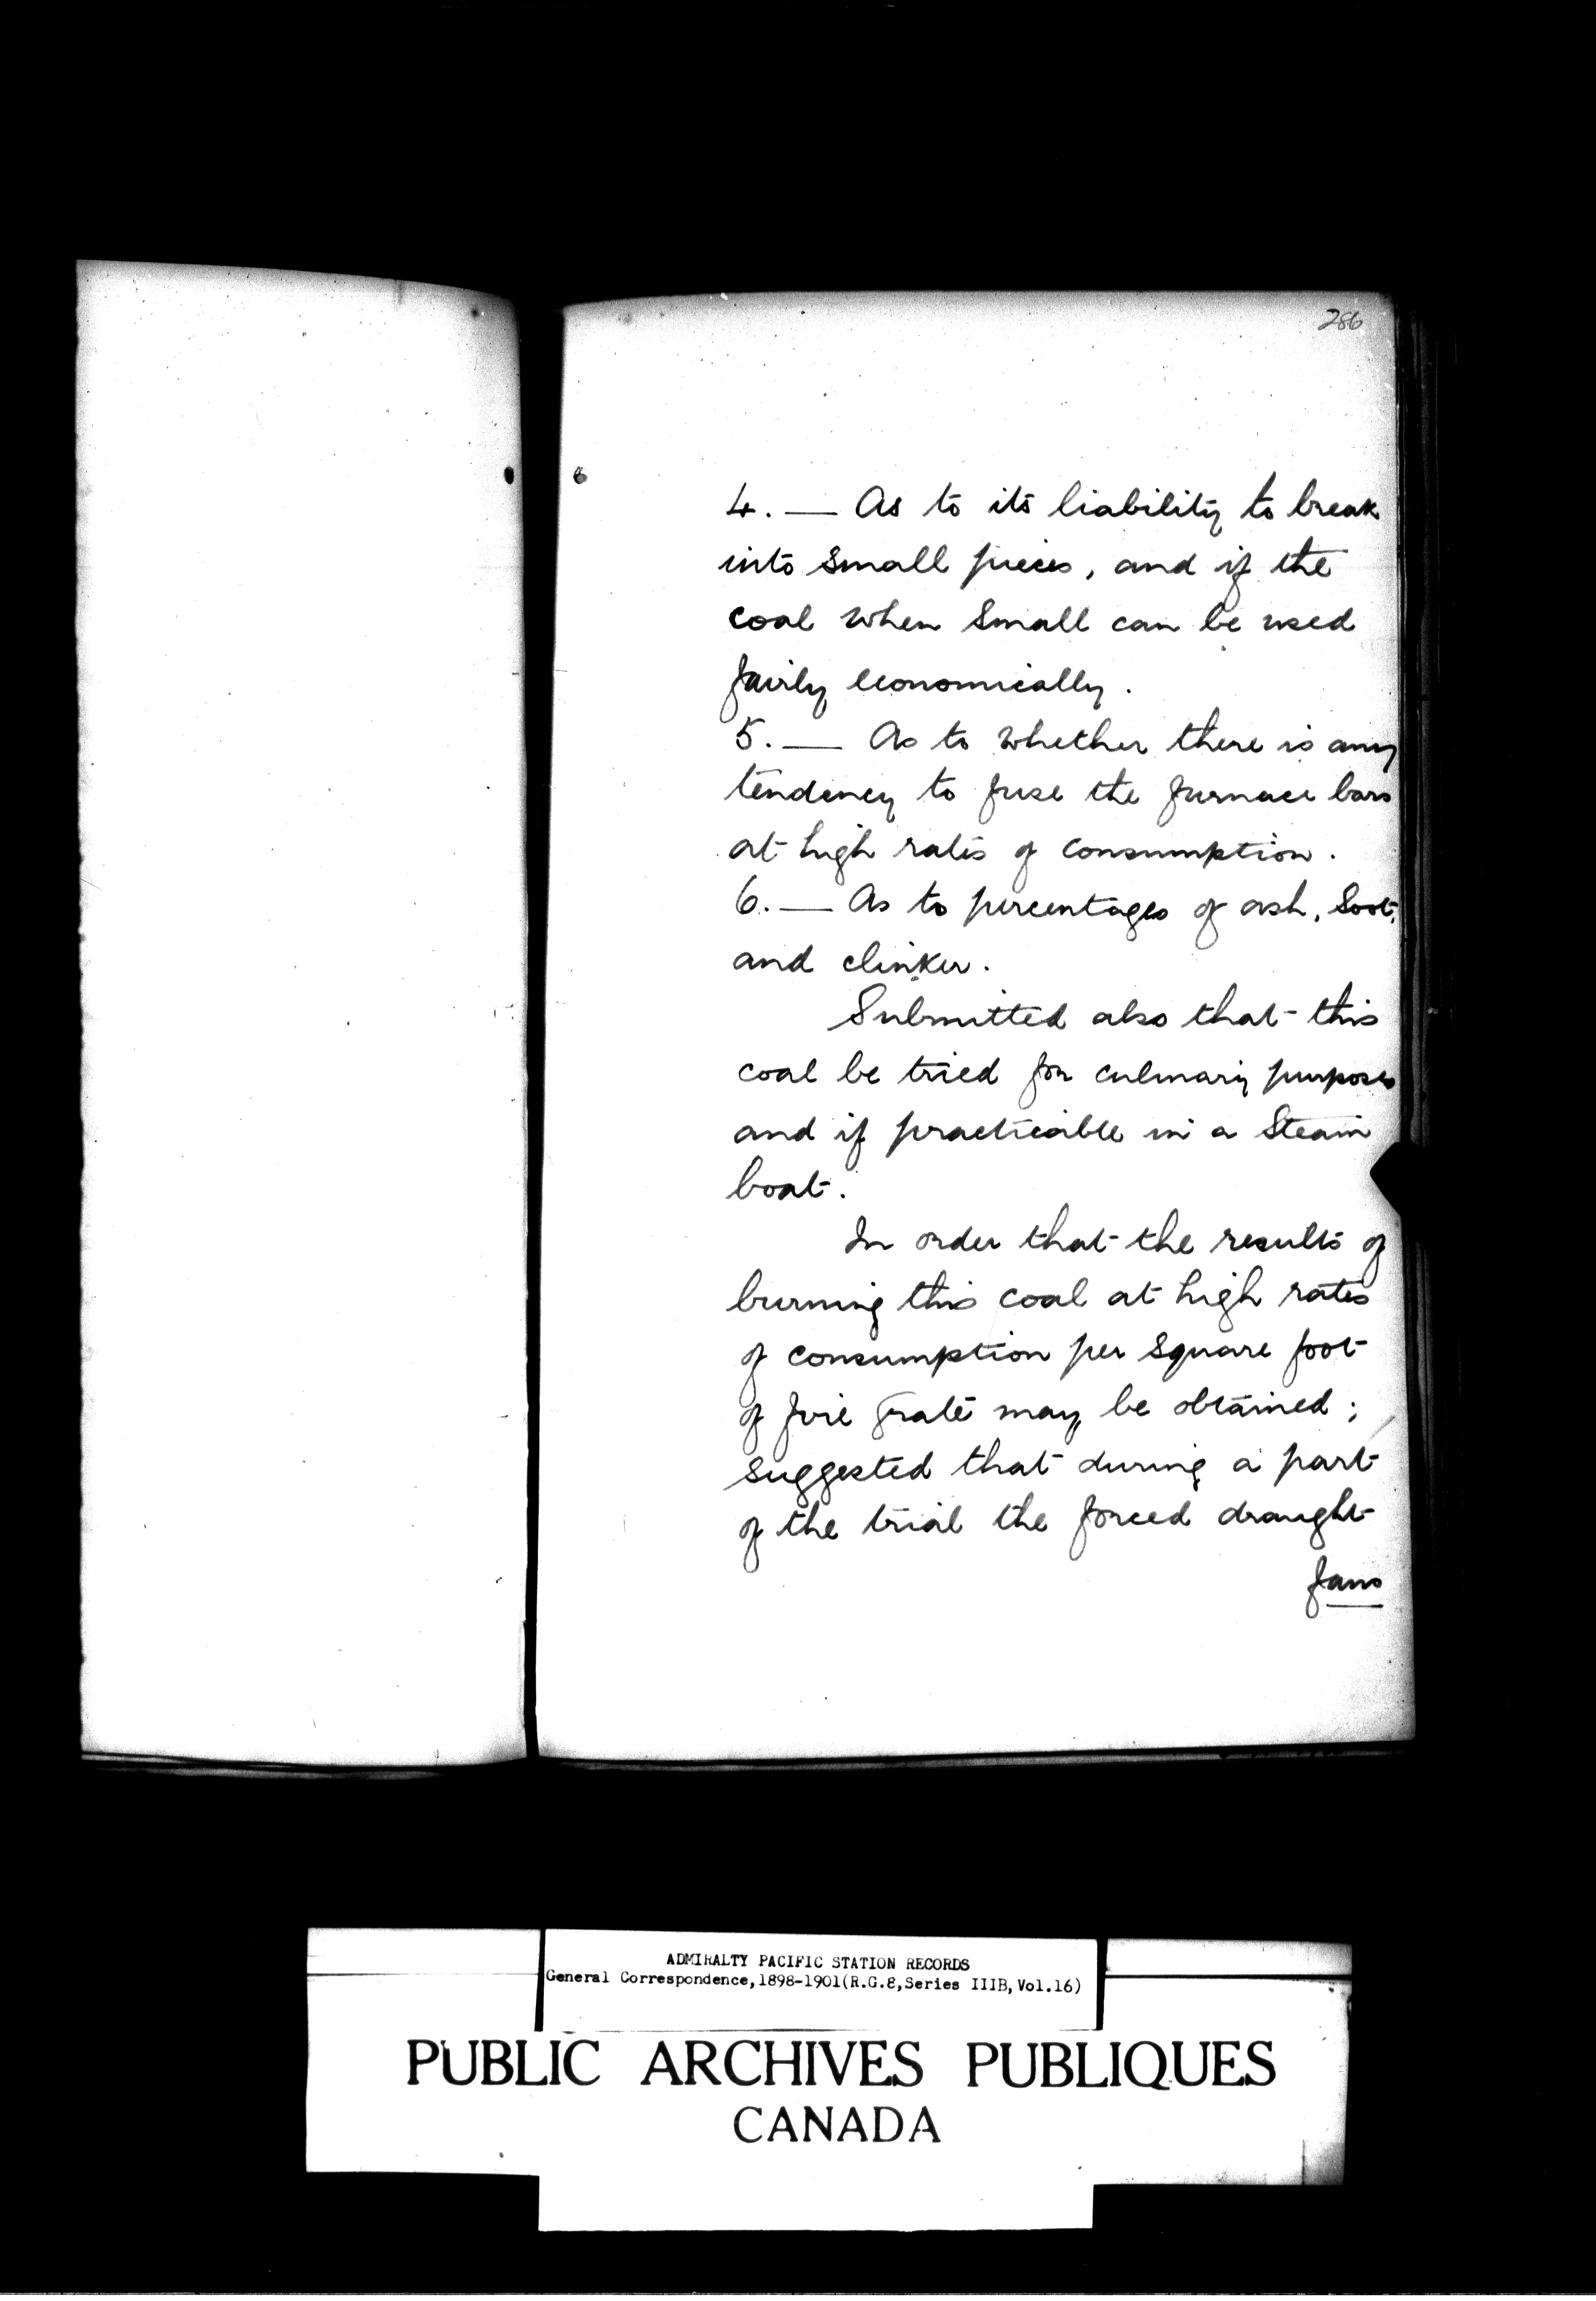 286
4. — As to its liability to break
into small pieces, and if the
coal when small can be used
fairly economically.
5. — As to whether there is any
tendency to fuse the furnace bars
at high rates of consumption.
6. — As to percentages of ash, soot,
and clinker.
Submitted also that this
coal be tried for culinary purposes
and if practicable in a Steam
boat.
In order that the results of
burning this coal at high rates
of consumption per square foot
of fire grate may be obtained;
suggested that during a part
of the trial the forced draught
fans
ADMIRALTY PACIFIC STATION RECORDS
General Correspondence,1898-1901(R.G.8,Series IIIB,Vol.16)
PUBLIC ARCHIVES PUBLIQUES
CANADA